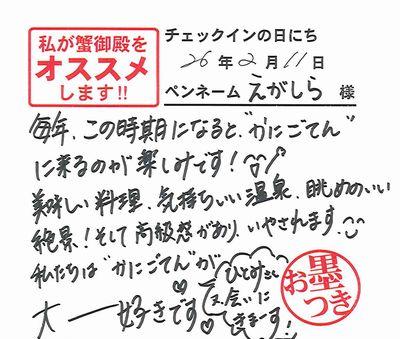 私が蟹御殿を
オススメ
します!!
チェックインの日にち
26年2月11日
ペンネーム えがしら 様
毎年、この時期になると"かにごてん"
に来るのが楽しみです!
美味しい料理、気持ちいい温泉、眺めのいい
絶景!そして高級感があり、いやされます。
私たちは"かにごてん"が
大一好きです
又会いに
きまーす!
お墨つき